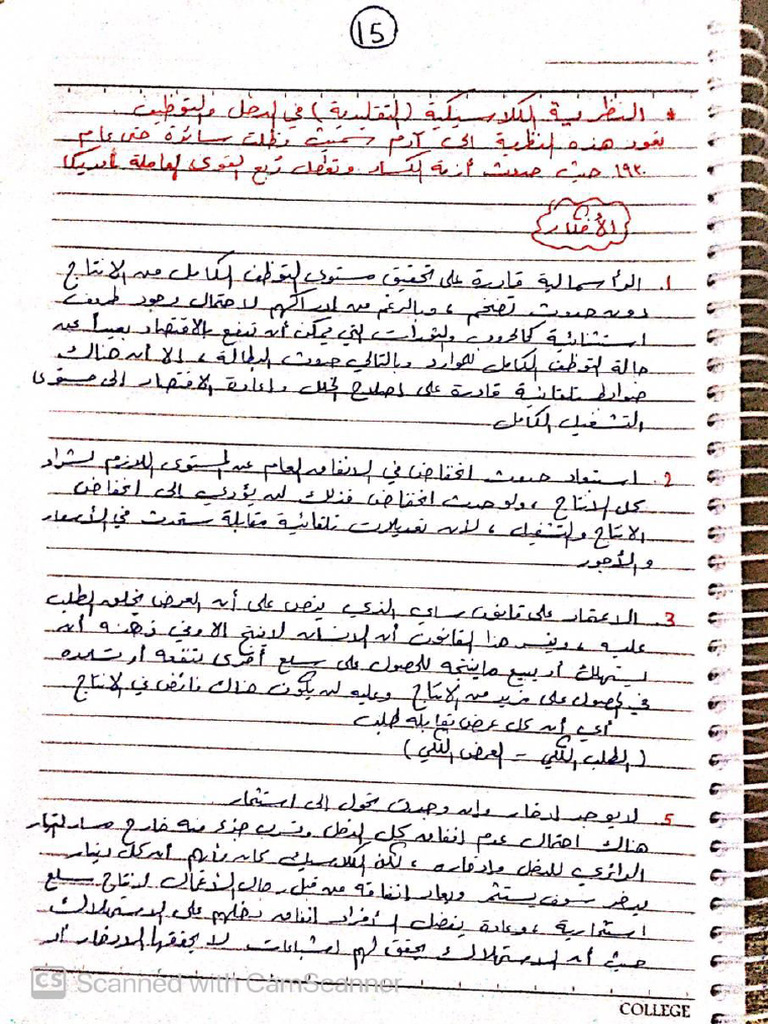 15
* النظرية الكلاسيكية (التقليدية) في الدخل والتوظيف
تعود هذه النظرية الى آدم سميث وظلت سائدة حتى عام
١٩٣٠ حيث حدوث أزمة الكساد وتعطل ربع القوى العاملة بأمريكا
الأفكار
1. الرأسمالية قادرة على تحقيق مستوى التوظف الكامل من الانتاج
دون حدوث تضخم ، وبالرغم من ادراكهم لاحتمال وجود ظروف
استثنائية كالحروب والثورات التي يمكن أن تدفع بالاقتصاد بعيداً عن
حالة التوظف الكامل للموارد وبالتالي حدوث البطالة ، الا أن هناك
ضوابط تلقائية قادرة على اصلاح الخلل واعادة الاقتصاد الى مستوى
التشغيل الكامل
2. استبعاد حدوث انخفاض في الانفاق العام عن المستوى اللازم لشراء
كل الانتاج ، ولو حدث انخفاض فذلك لن يؤدي الى انخفاض
الانتاج والتشغيل ، لأن تعديلات تلقائية مقابلة ستحدث في الأسعار
والأجور
3. الاعتماد على قانون ساي الذي ينص على أن العرض يخلق الطلب
عليه ، ويفسر هذا القانون أن الانسان لا ينتج الا وفي ذهنه أن
يستهلك أو يبيع ما ينتجه للحصول على سلع أخرى تنفعه أو تساعده
في الحصول على مزيد من الانتاج وعليه لن يكون هناك فائض في الانتاج
أي أن كل عرض يقابله طلب
(الطلب الكلي - العرض الكلي)
5. لا يوجد ادخار وان وجدت تحول الى استثمار
هناك احتمال عدم انفاق كل الدخل وتسرب جزء منه خارج مسار التيار
الدائري للدخل وادخاره ، لكن الكلاسيك كان رأيهم أن كل دينار
يدخر سوف يستثمر ويعاد انفاقه من قبل رجال الأعمال لانتاج سلع
استثمارية ، وعادة يفضل الأفراد انفاق دخلهم على الاستهلاك
حيث أن الاستهلاك يحقق لهم اشباعات لا يحققها الادخار أو
CS Scanned with CamScanner
COLLEGE